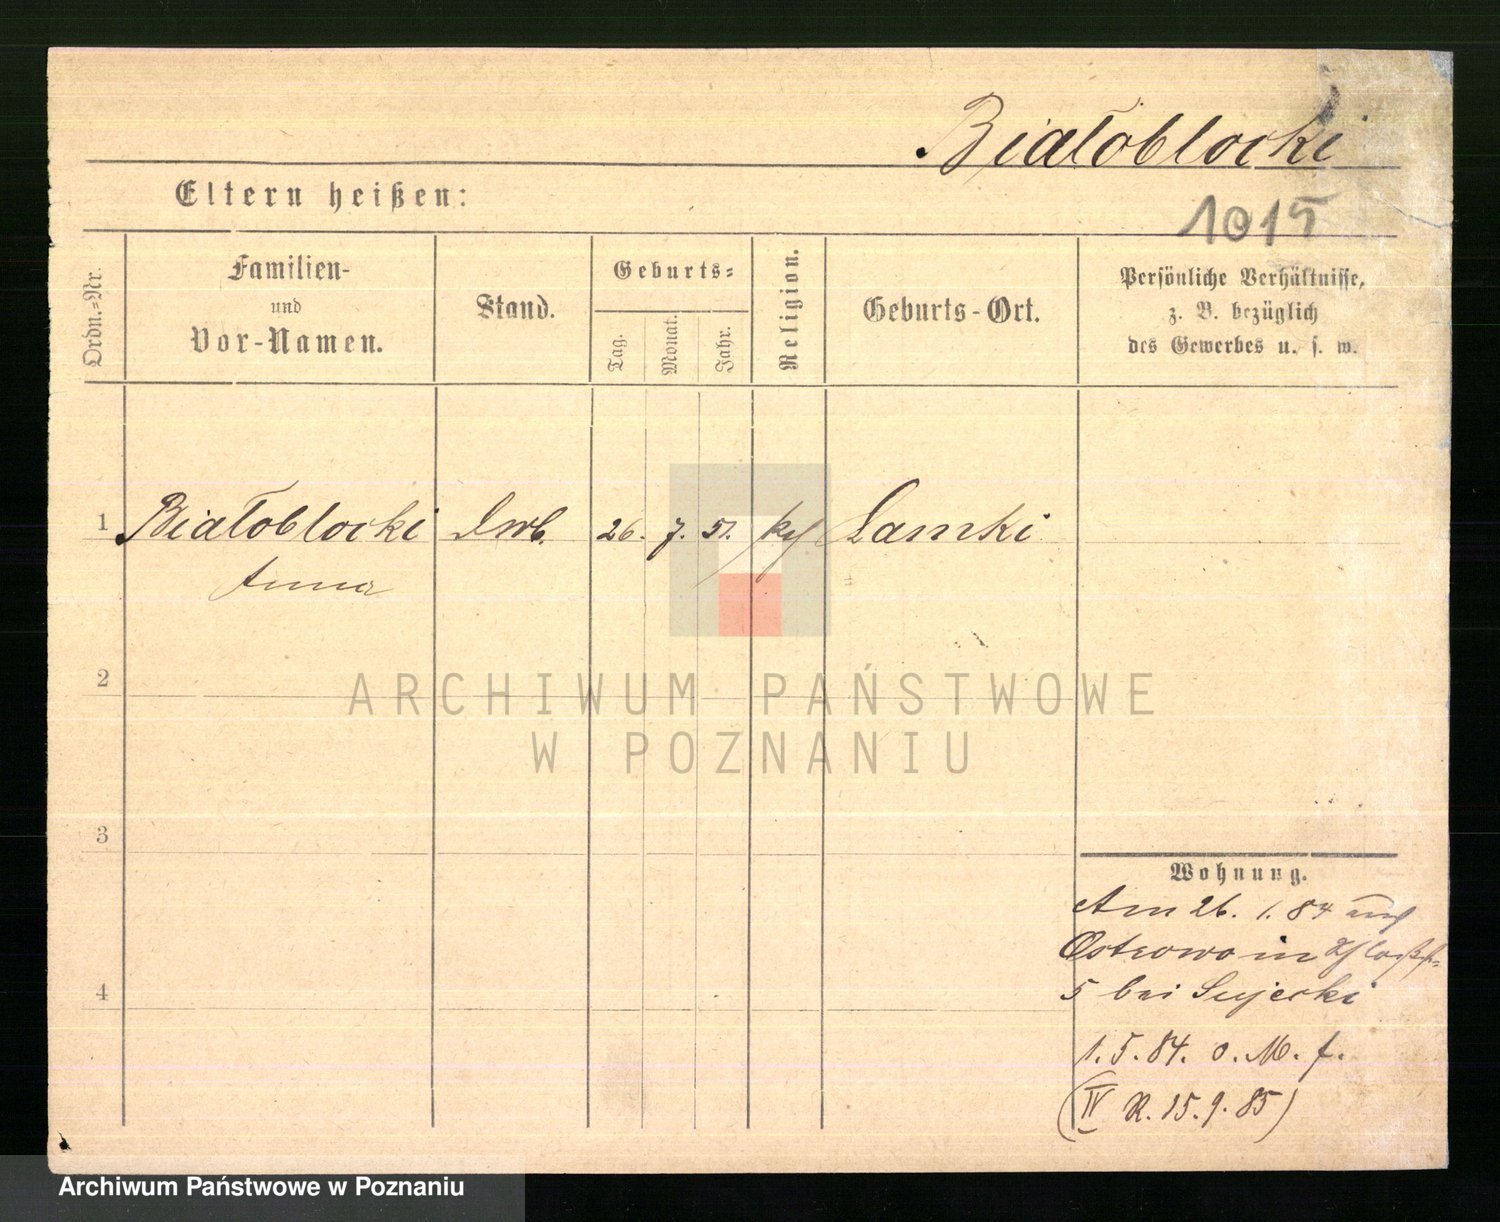 Białoblocki
Eltern heißen:
1015
Ordn.-Nr.
Familien-
und
Vor-Namen.
Stand.
Geburts-
Tag.
Monat.
Jahr.
Religion.
Geburts-Ort.
Persönliche Verhältnisse,
z. B. bezüglich
des Gewerbes u. s. w.
1 Białoblocki 26. 7. 51. Lamki
Anna
2
ARCHIWUM PAŃSTWOWE
W POZNANIU
3
Wohnung.
Am 26. 1. 84 aus
Ostrowo in Schloßstr.
5 bei Sujecki
4
1. 5. 84. o. M. f.
(IV R. 15. 9. 85)
Archiwum Państwowe w Poznaniu